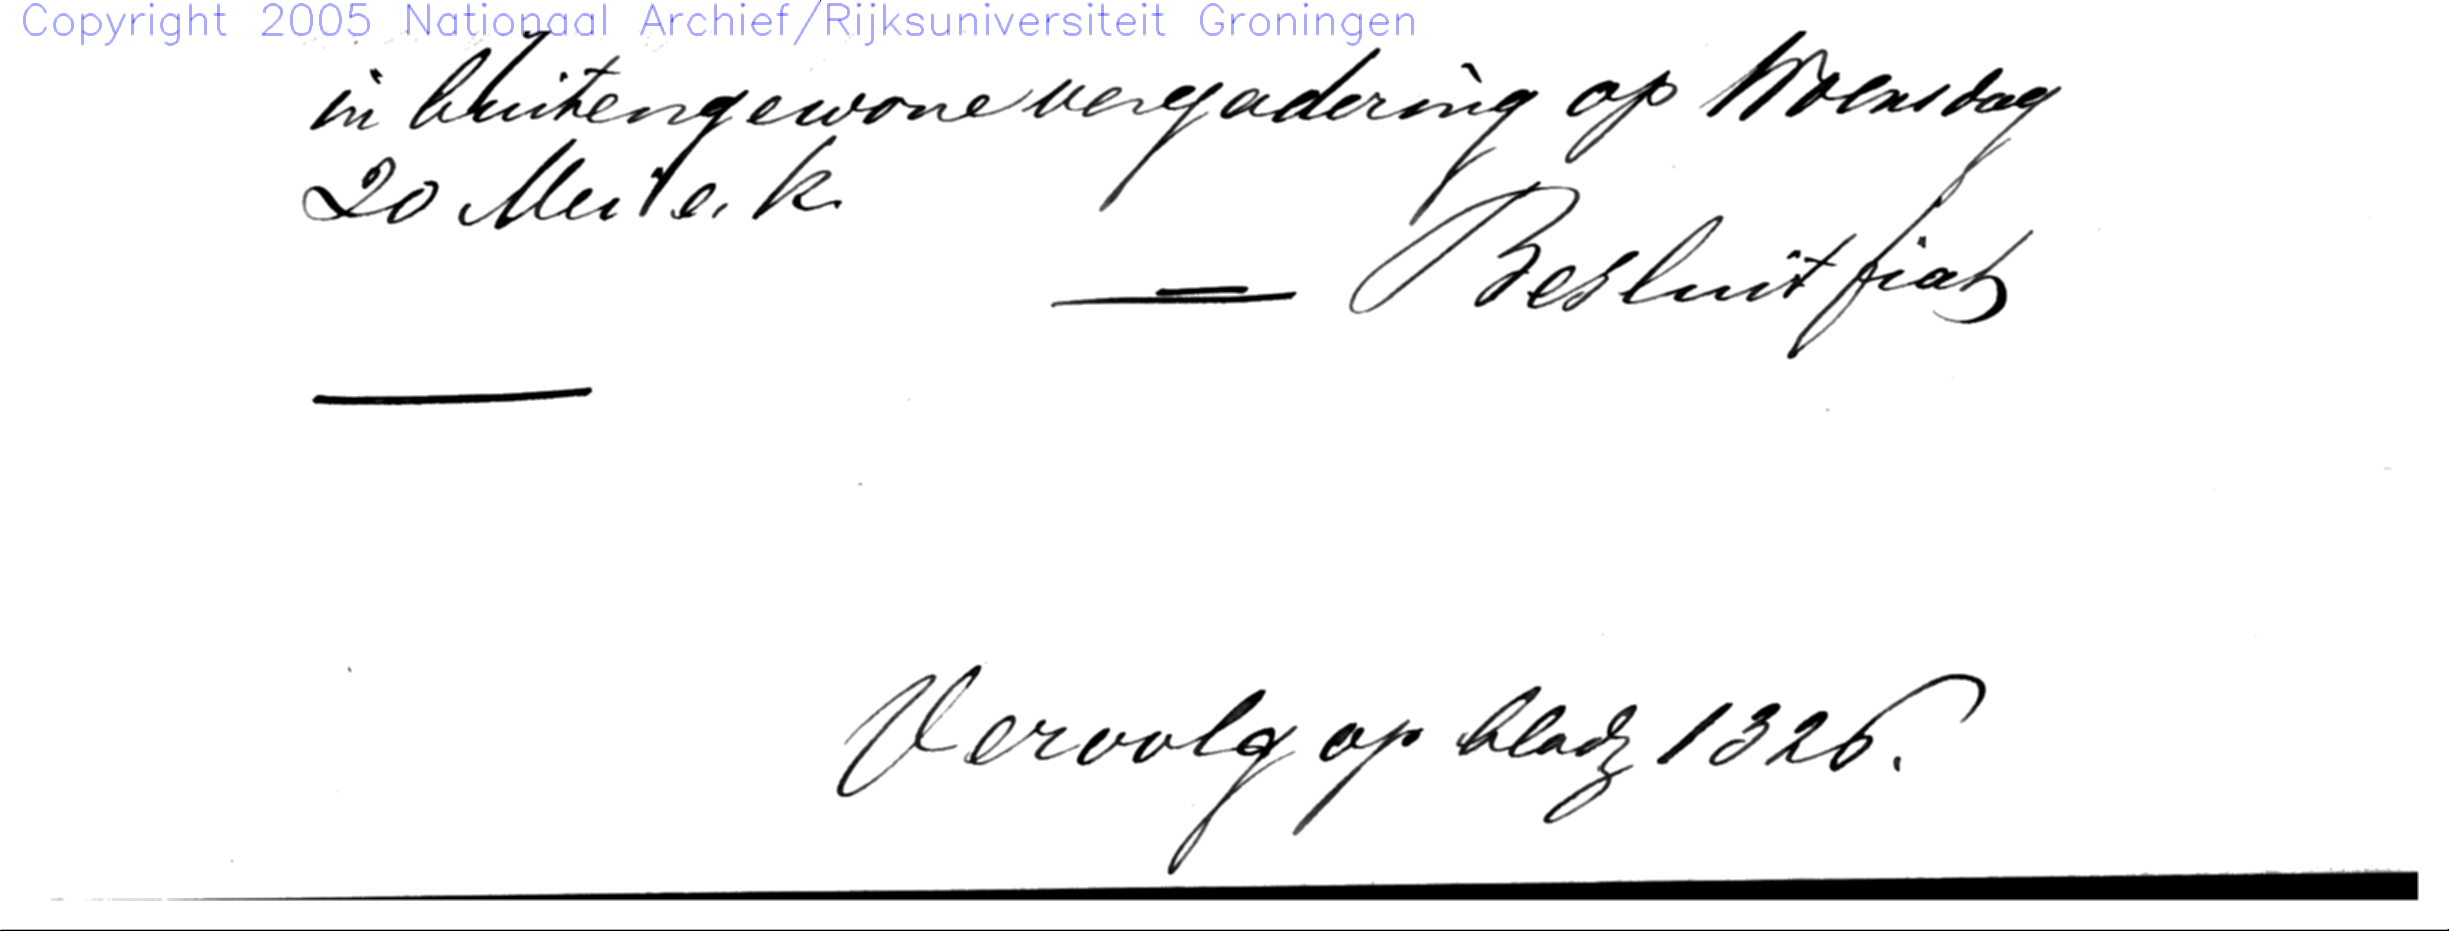 Copyright 2005 Nationaal Archief/Rijksuniversiteit Groningen
in buitengewone vergadering op Woensdag
20 Mei e. k.
Besluit fiat
Vervolg op bladz 1326.